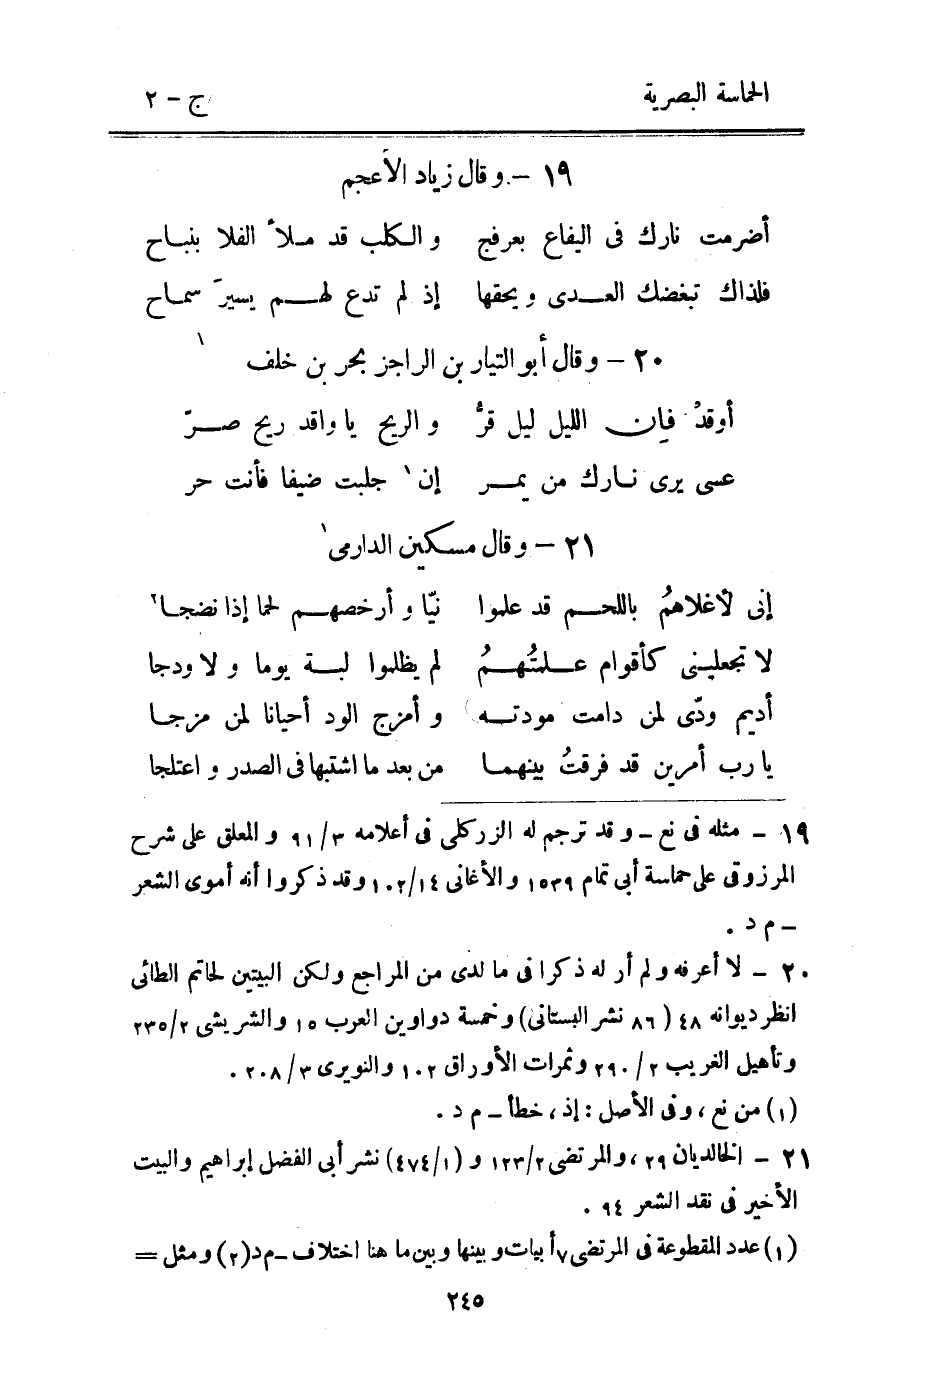 الحماسة البصرية ج – ٢
١٩ – و قال زياد الأعجم
أضرمت نارك فى اليفاع بعرفج و الكلب قد ملأ الفلا بنباح
فلذاك تبغضك العدى و يحقها إذ لم تدع لهم يسيرَ سماح
٢٠ – و قال أبو التيار بن الراجز بحر بن خلف ١
أوقدْ فإن الليل ليل قرُّ و الريح يا واقد ريح صرّ
عسى يرى نارك من يمر إن ١ جلبت ضيفا فأنت حر
٢١ – و قال مسكين الدارمى ١
إنى لأغلاهمُ باللحم قد علموا نيّا و أرخصهم لحما إذا نضجا ٢
لا تجعلينى كأقوام علمتُهمُ لم يظلموا لبة يوما و لا ودجا
أديم ودّى لمن دامت مودته و أمزج الود أحيانا لمن مزجا
يا رب أمرين قد فرقتُ بينهما من بعد ما اشتبها فى الصدر و اعتلجا
١٩ – مثله فى نع – و قد ترجم له الزركلى فى أعلامه ٣/ ٩١ و المعلق على شرح
المرزوقى على حماسة أبى تمام ١٥٣٩ و الأغانى ١٤/ ١٠٢ وقد ذكروا أنه أموى الشعر
– م د .
٢٠ – لا أعرفه و لم أر له ذكرا فى ما لدى من المراجع ولكن البيتين لحاتم الطائى
انظر ديوانه ٤٨ ( ٨٦ نشر البستانى) و خمسة دواوين العرب ١٥ والشريشى ٢/ ٢٣٥
و تأهيل الغريب ٢/ ٢٩٠ و ثمرات الأوراق ١٠٢ والنويرى ٣/ ٢٠٨ .
(١) من نع ، و فى الأصل : إذ ، خطأ – م د .
٢١ – الخالديان ٢٩ ، والمرتضى ٢/ ١٢٣ و (١/ ٤٧٤) نشر أبى الفضل إبراهيم والبيت
الأخير فى نقد الشعر ٩٤ .
(١) عدد المقطوعة فى المرتضى ٧ أبيات و بينها و بين ما هنا اختلاف – م د (٢) و مثل =
٢٤٥